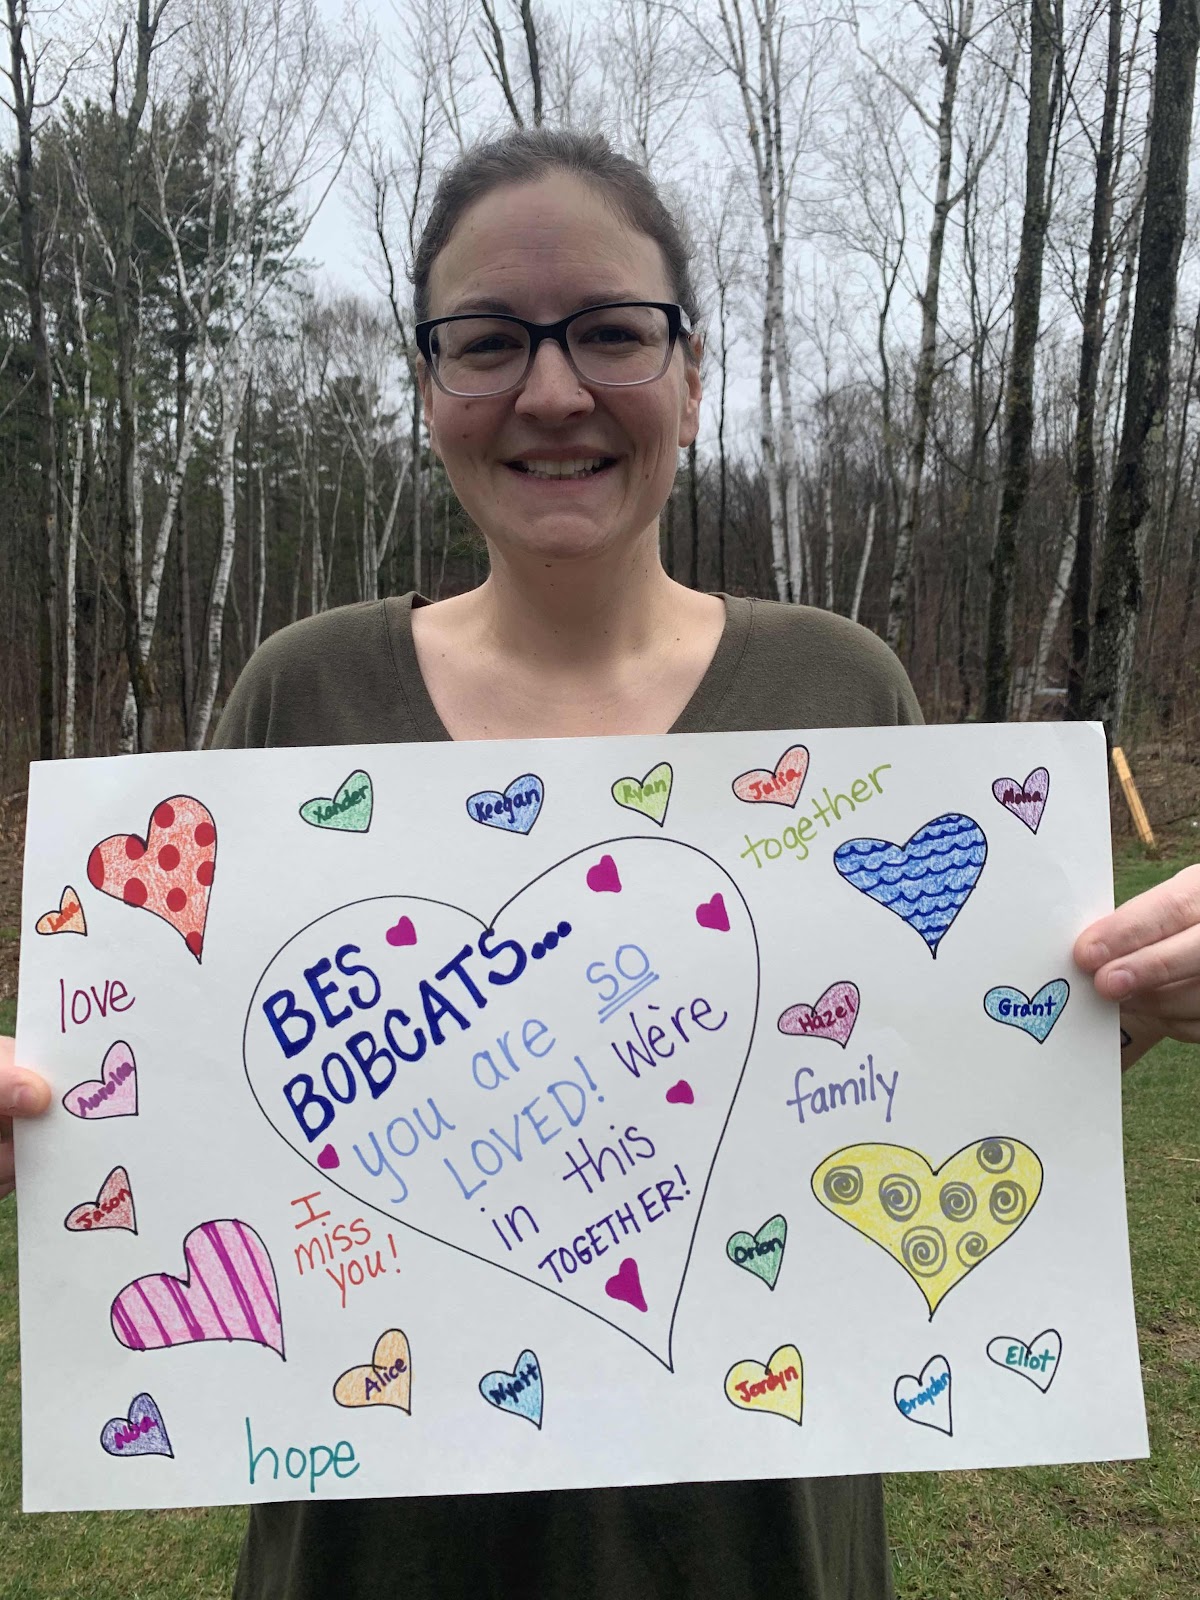 Xander
Keegan
Ryan
Julia
together
love
BES
BOBCATS...
you are so
LOVED! We're
in this
TOGETHER!
Hazel
Grant
family
Aurelia
Jason
I
miss
you!
Orion
Alice
Wyatt
Jordyn
Brayden
Eliot
Nora
hope